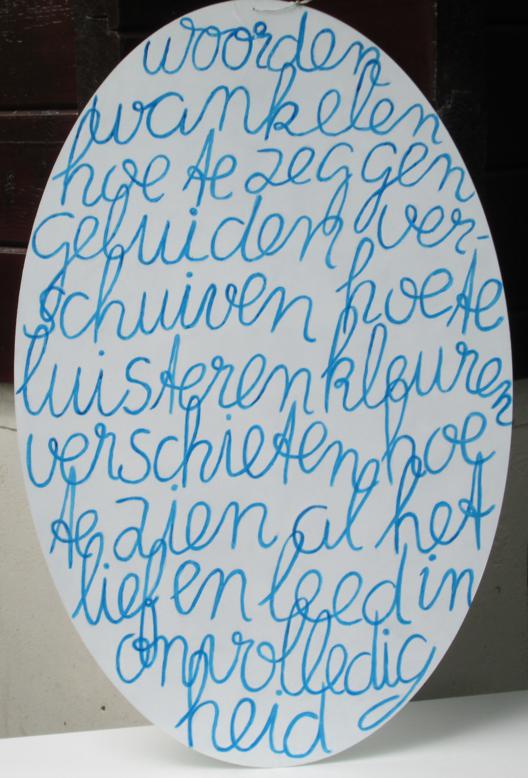 woorden
wankelen
hoe te zeggen
geluiden ver-
schuiven hoe te
luisteren kleuren
verschieten hoe
te zien al het
lief en leed in
onvolledig
heid